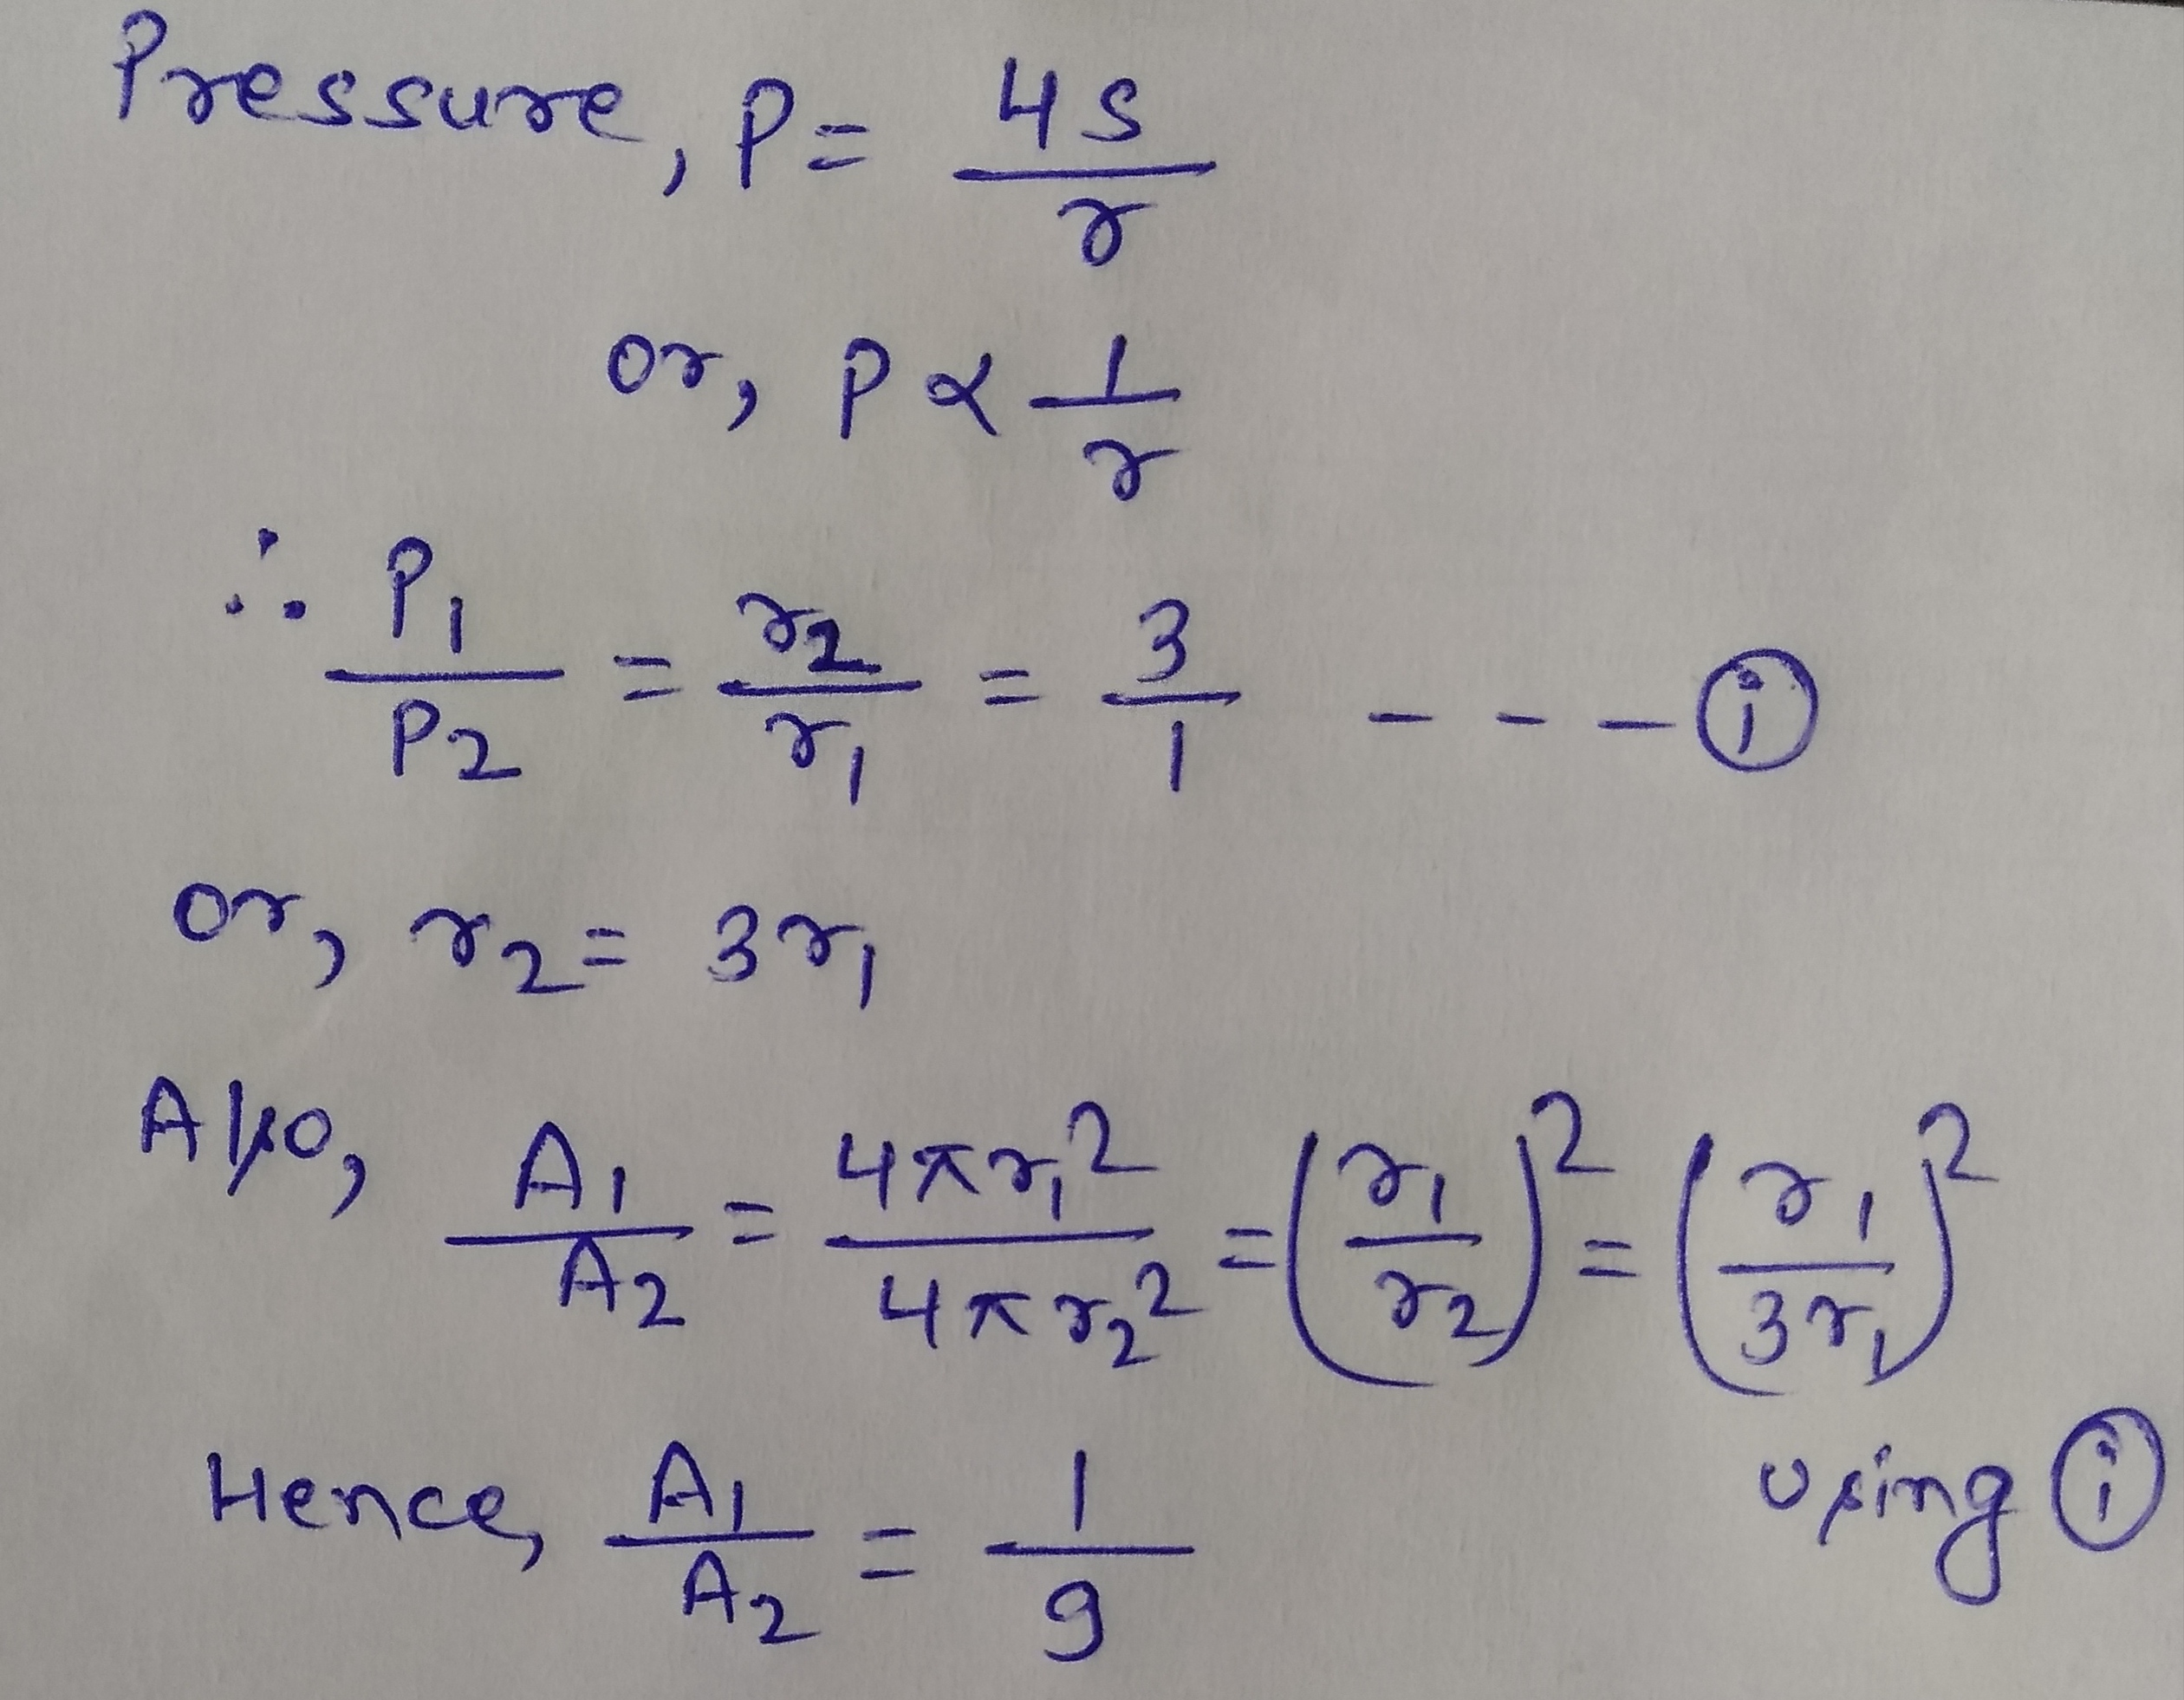 Pressure, P = 4S/r
or, P ∝ 1/r
∴ P₁/P₂ = r₂/r₁ = 3/1 - - - (i)
or, r₂ = 3r₁
Also, A₁/A₂ = 4πr₁²/4πr₂² = (r₁/r₂)² = (r₁/3r₁)²
using (i)
Hence, A₁/A₂ = 1/9